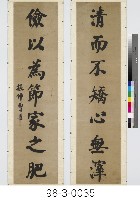 清而不矯心無渾
儉以為節家之肥
98-3-0035